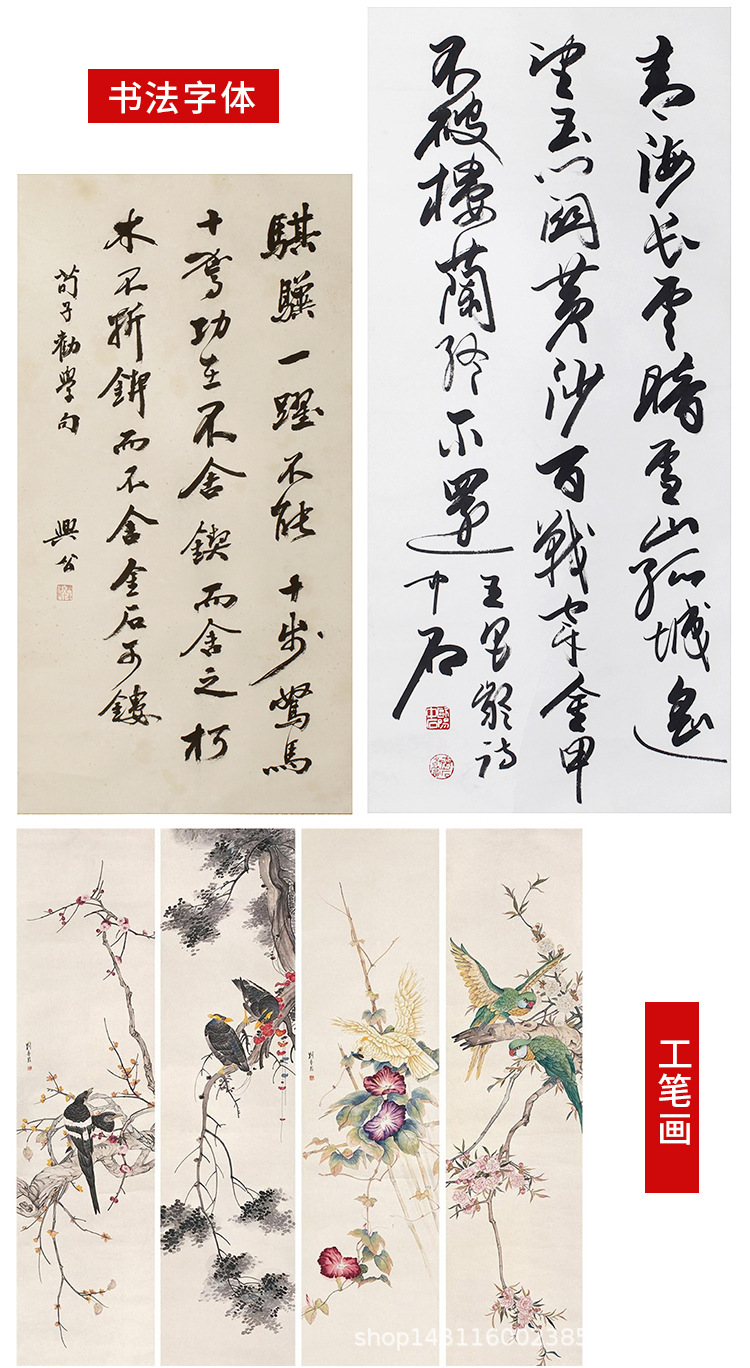 书法字体
骐骥一躍不能十步駑馬
十駕功在不舍鍥而舍之朽
木不折鍥而不舍金石可鏤
荀子勸學句
興公
青海长雲暗雪山孤城遥
望玉门関黄沙百戰穿金甲
不破樓蘭终不還
王昌龄诗
中石
工笔画
shop143116002385